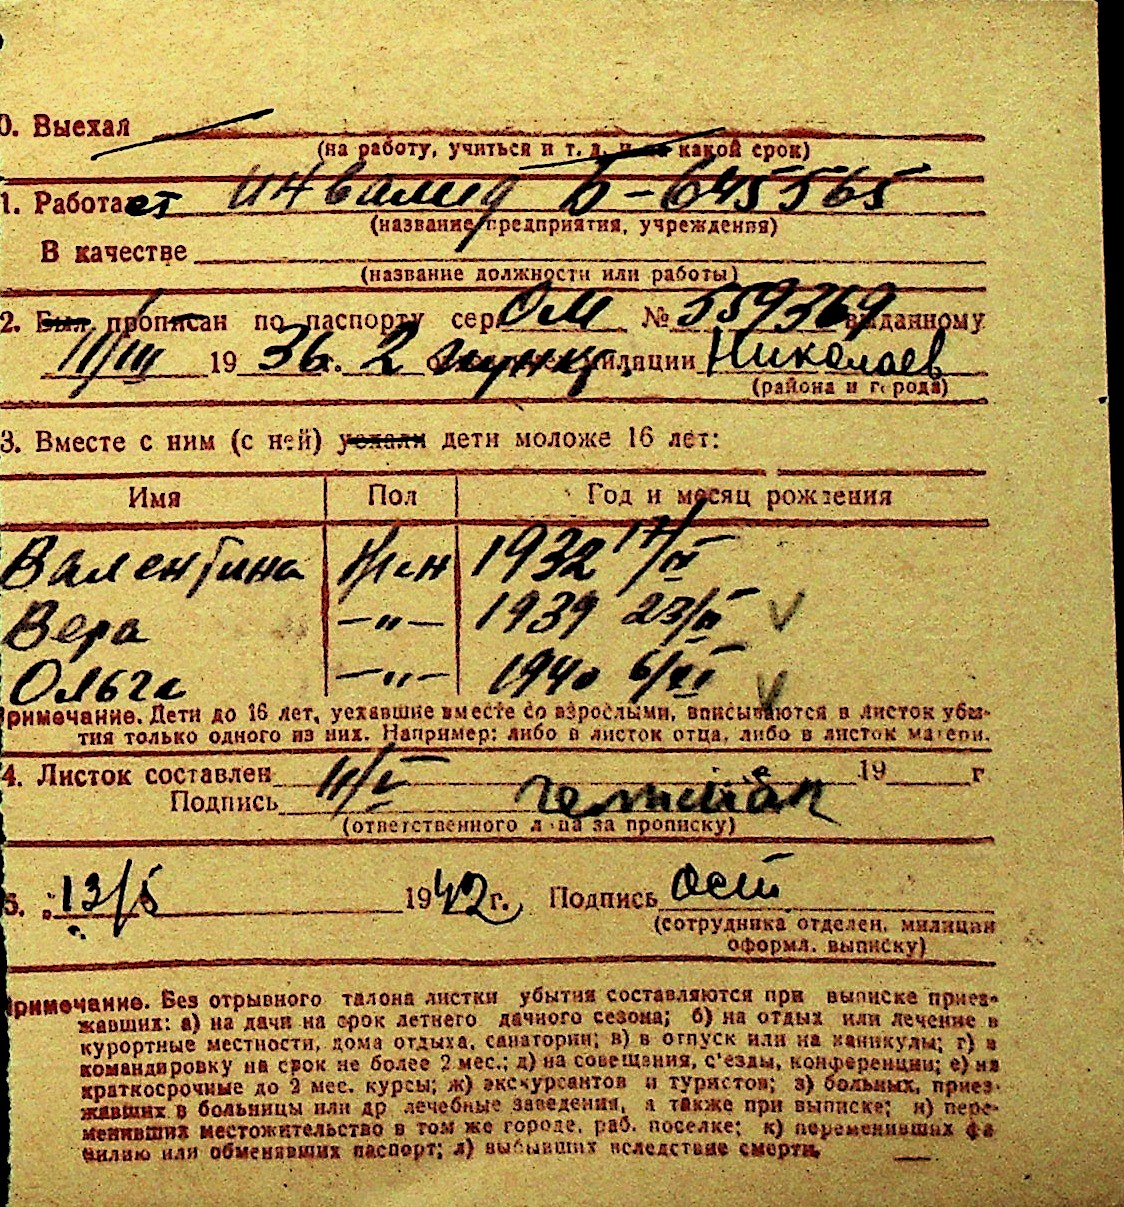 0. Выехал
(на работу, учиться и т. д. и на какой срок)
1. Работает инвалид Б-645565
(название предприятия, учреждения)
В качестве
(название должности или работы)
2. Был прописан по паспорту сер. ОМ № 559369 выданному
11/III 1936 г. 2 милиции Николаев
(района и города)
3. Вместе с ним (с ней) уехали дети моложе 16 лет:
Имя Пол Год и месяц рождения
Валентина Жен 1932 17/IV
Вера —"— 1939 23/II
Ольга —"— 1940 6/VII
Примечание. Дети до 16 лет, уехавшие вместе со взрослыми, вписываются в листок убы-
тия только одного из них. Например: либо в листок отца, либо в листок матери.
4. Листок составлен 11/V 19 г
Подпись
(ответственного лица за прописку)
5. 13/5 1942 г. Подпись
(сотрудника отделен. милиции
оформл. выписку)
Примечание. Без отрывного талона листки убытия составляются при выписке приез-
жавших: а) на дачи на срок летнего дачного сезона; б) на отдых или лечение в
курортные местности, дома отдыха, санатории; в) в отпуск или на каникулы; г) в
командировку на срок не более 2 мес.; д) на совещания, с'езды, конференции; е) на
краткосрочные до 2 мес. курсы; ж) экскурсантов и туристов; з) больных, приез-
жавших в больницы или др лечебные заведения, а также при выписке; и) пере-
менивших местожительство в том же городе, раб. поселке; к) переменивших фа
милию или обменявших паспорт; л) выбывших вследствие смерти.